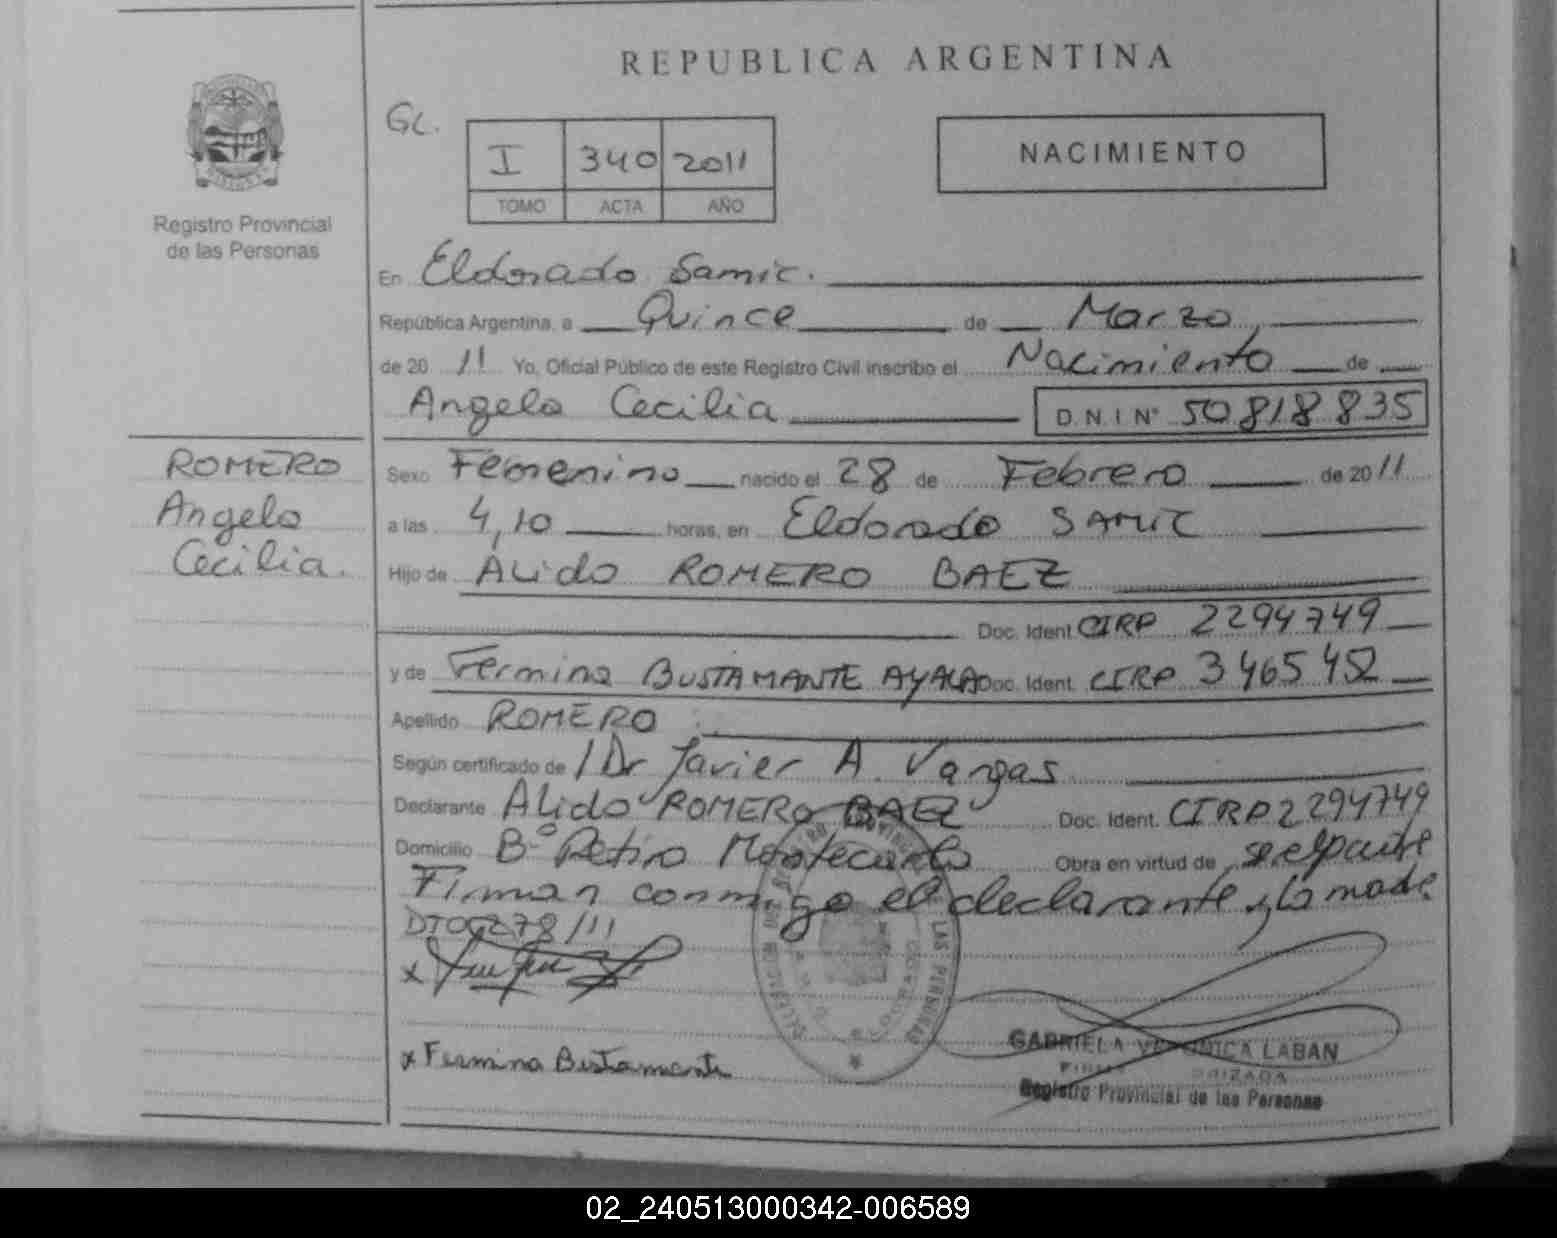 REPUBLICA ARGENTINA
GL.
I 340 2011
TOMO ACTA AÑO
NACIMIENTO
Registro Provincial
de las Personas
En Eldorado Samic.
República Argentina, a Quince de Marzo,
de 20 11 Yo, Oficial Público de este Registro Civil inscribo el Nacimiento de
Angela Cecilia D.N.I Nº 50818835
ROMERO
Angela
Cecilia.
Sexo Femenino nacido el 28 de Febrero de 2011
a las 4,10 horas, en Eldorado SAMIC
Hijo de Alido ROMERO BAEZ
Doc. Ident. CIRP 2294749
y de Fermina BUSTAMANTE AYALA Doc. Ident. CIRP 3465452
Apellido ROMERO
Según certificado de Dr Javier A. Vargas
Declarante Alido ROMERO BAEZ Doc. Ident. CIRP 2294749
Domicilio Bº Retiro Montecarlo Obra en virtud de ser el padre
Firman conmigo el declarante y la madre
DTO 278/11
x
x Fermina Bustamante
LAS PERSONAS
GABRIELA VERONICA LABAN
Registro Provincial de las Personas
02_240513000342-006589